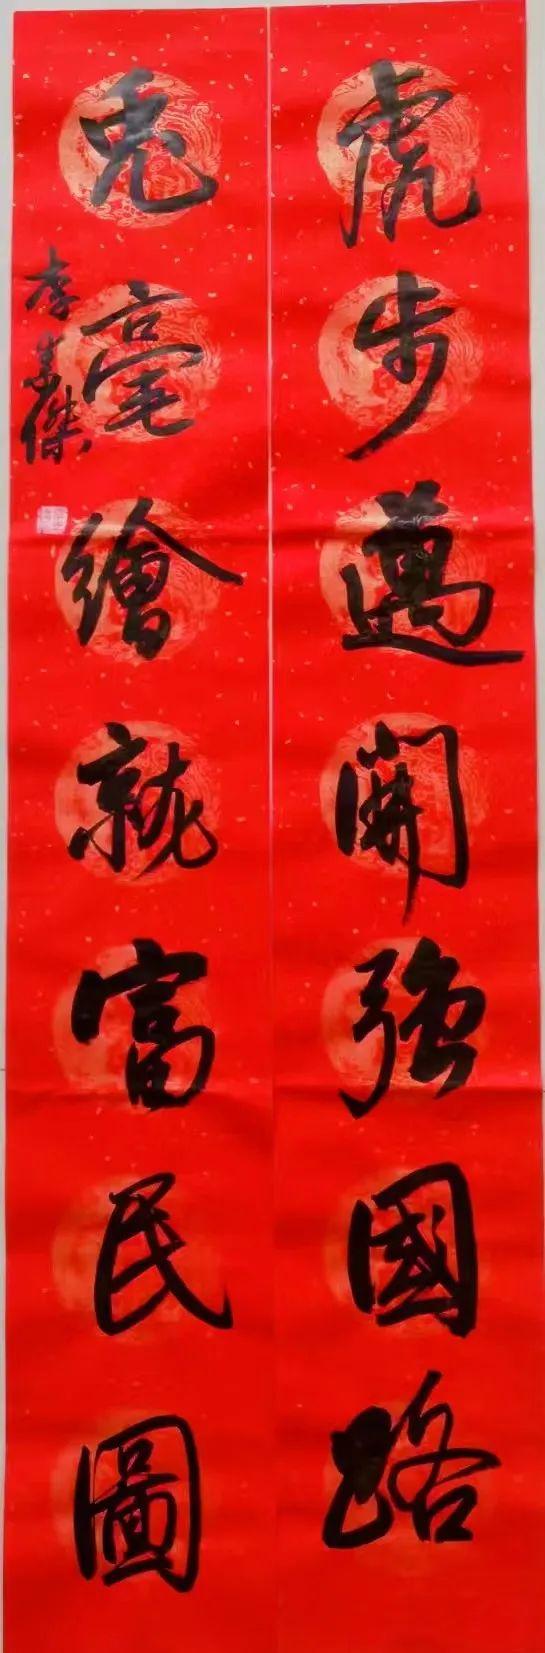 虎步邁開強國路
兔毫繪就富民圖